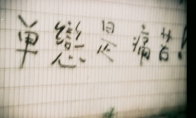 单戀是痛苦!